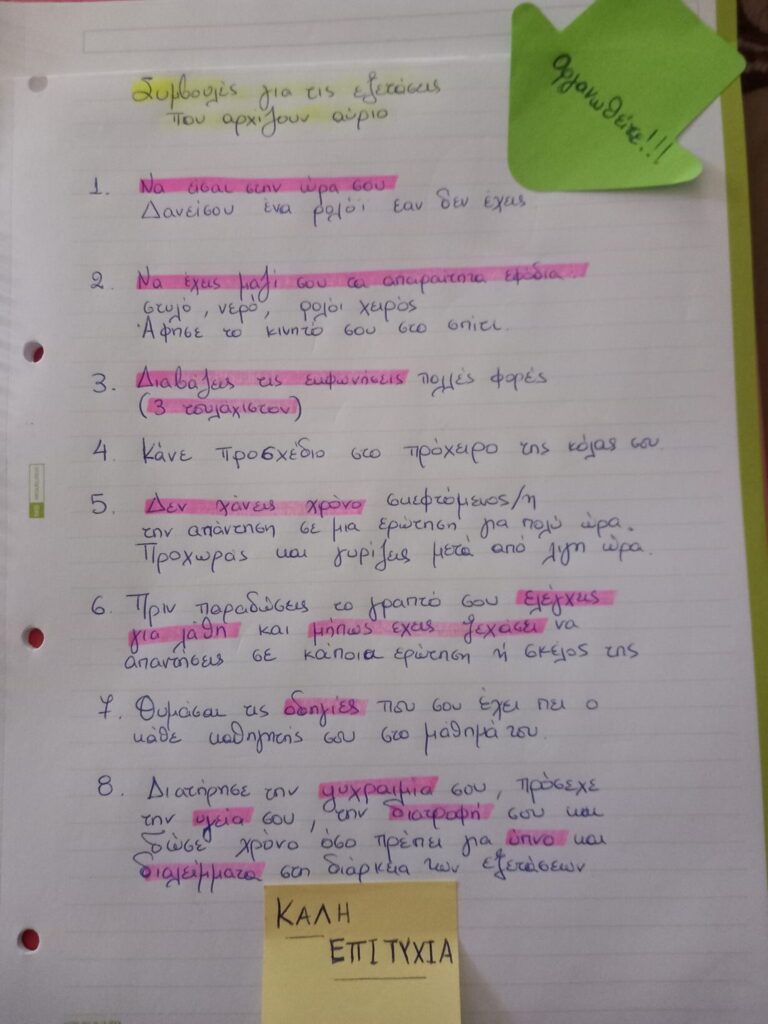 Συμβουλές για τις εξετάσεις
που αρχίζουν αύριο
Οργανωθείτε!!!
1. Να είσαι στην ώρα σου
Δανείσου ένα ρολόι εαν δεν έχεις
2. Να έχεις μαζί σου τα απαραίτητα εφόδια..
στυλό, νερό, ρολόι χειρός
Άφησε το κινητό σου στο σπίτι.
3. Διαβάζεις τις εκφωνήσεις πολλές φορές
(3 τουλάχιστον)
4. Κάνε προσχέδιο στο πρόχειρο της κόλας σου.
5. Δεν χάνεις χρόνο σκεφτόμενος/η
την απάντηση σε μια ερώτηση για πολύ ώρα.
Προχωράς και γυρίζεις μετά από λίγη ώρα.
6. Πριν παραδώσεις το γραπτό σου ελέγχεις
για λάθη και μήπως έχεις ξεχάσει να
απαντήσεις σε κάποια ερώτηση ή σκέλος της
7. Θυμάσαι τις οδηγίες που σου έχει πει ο
κάθε καθηγητής σου στο μάθημά του.
8. Διατήρησε την ψυχραιμία σου, πρόσεχε
την υγεία σου, την διατροφή σου και
δώσε χρόνο όσο πρέπει για ύπνο και
διαλείμματα στη διάρκεια των εξετάσεων
ΚΑΛΗ
ΕΠΙΤΥΧΙΑ